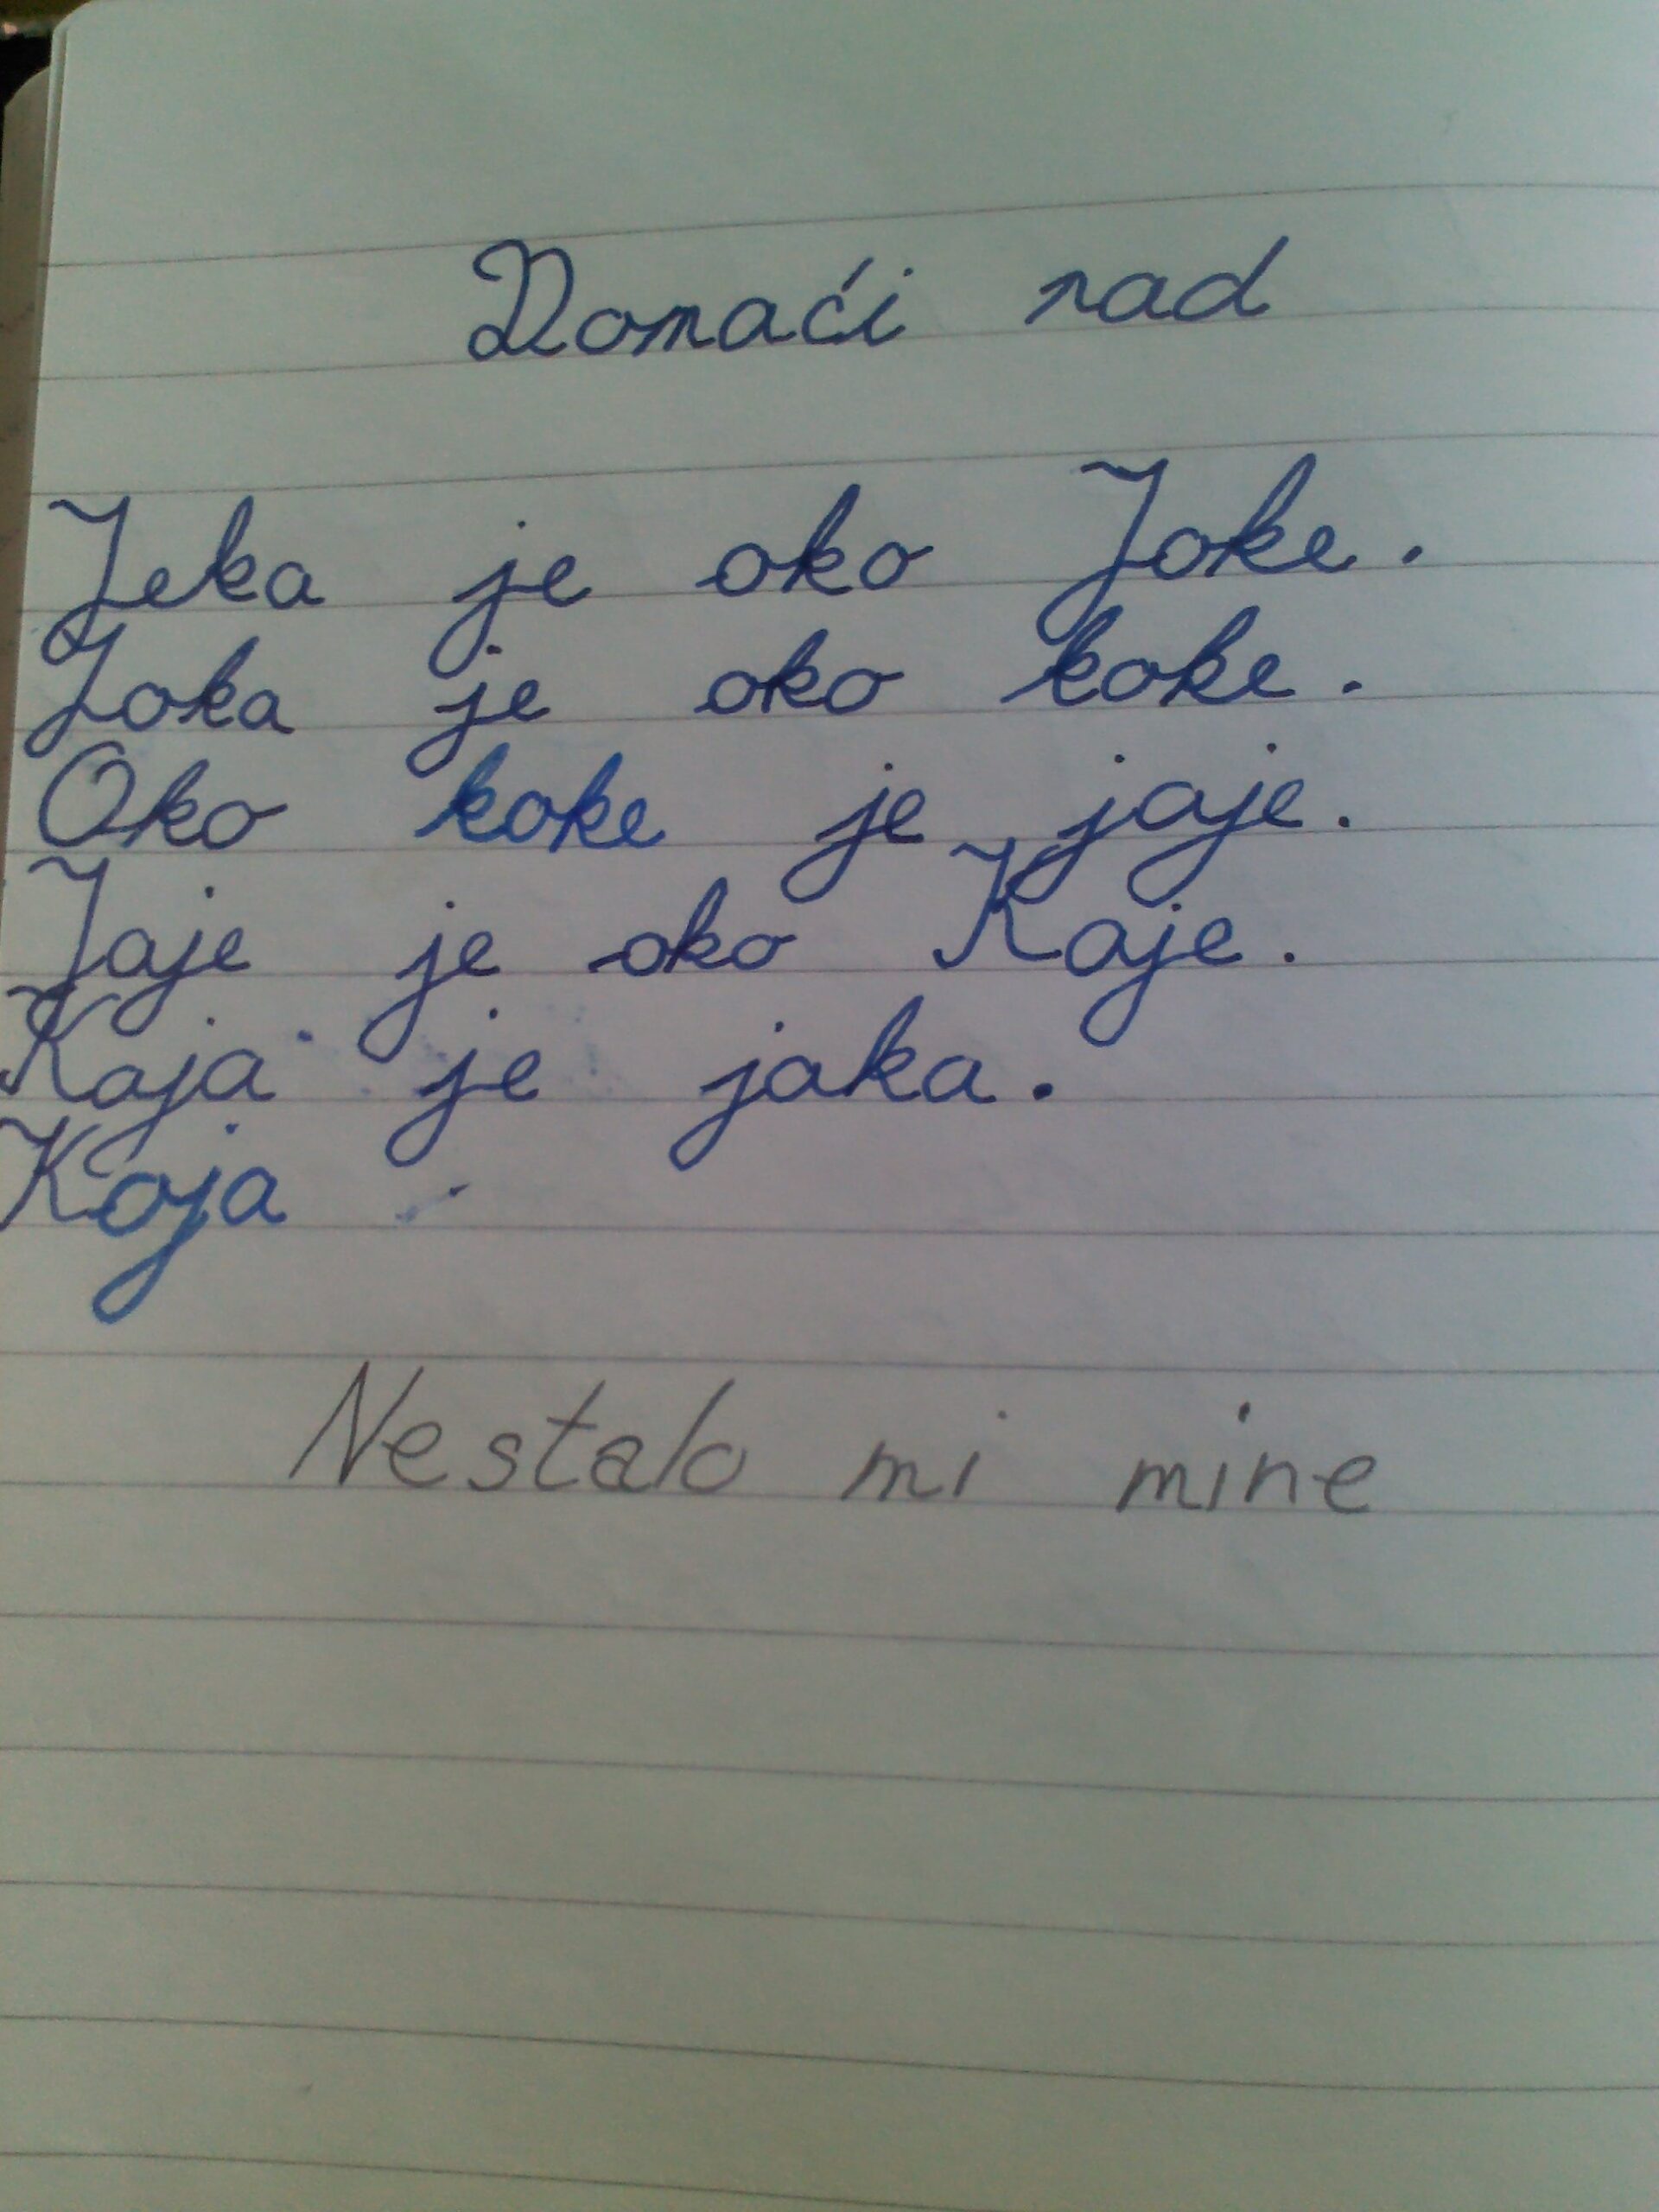 Domaći rad
Jeka je oko Joke.
Joka je oko koke.
Oko koke je jaje.
Jaje je oko Kaje.
Kaja je jaka.
Koja
Nestalo mi mine